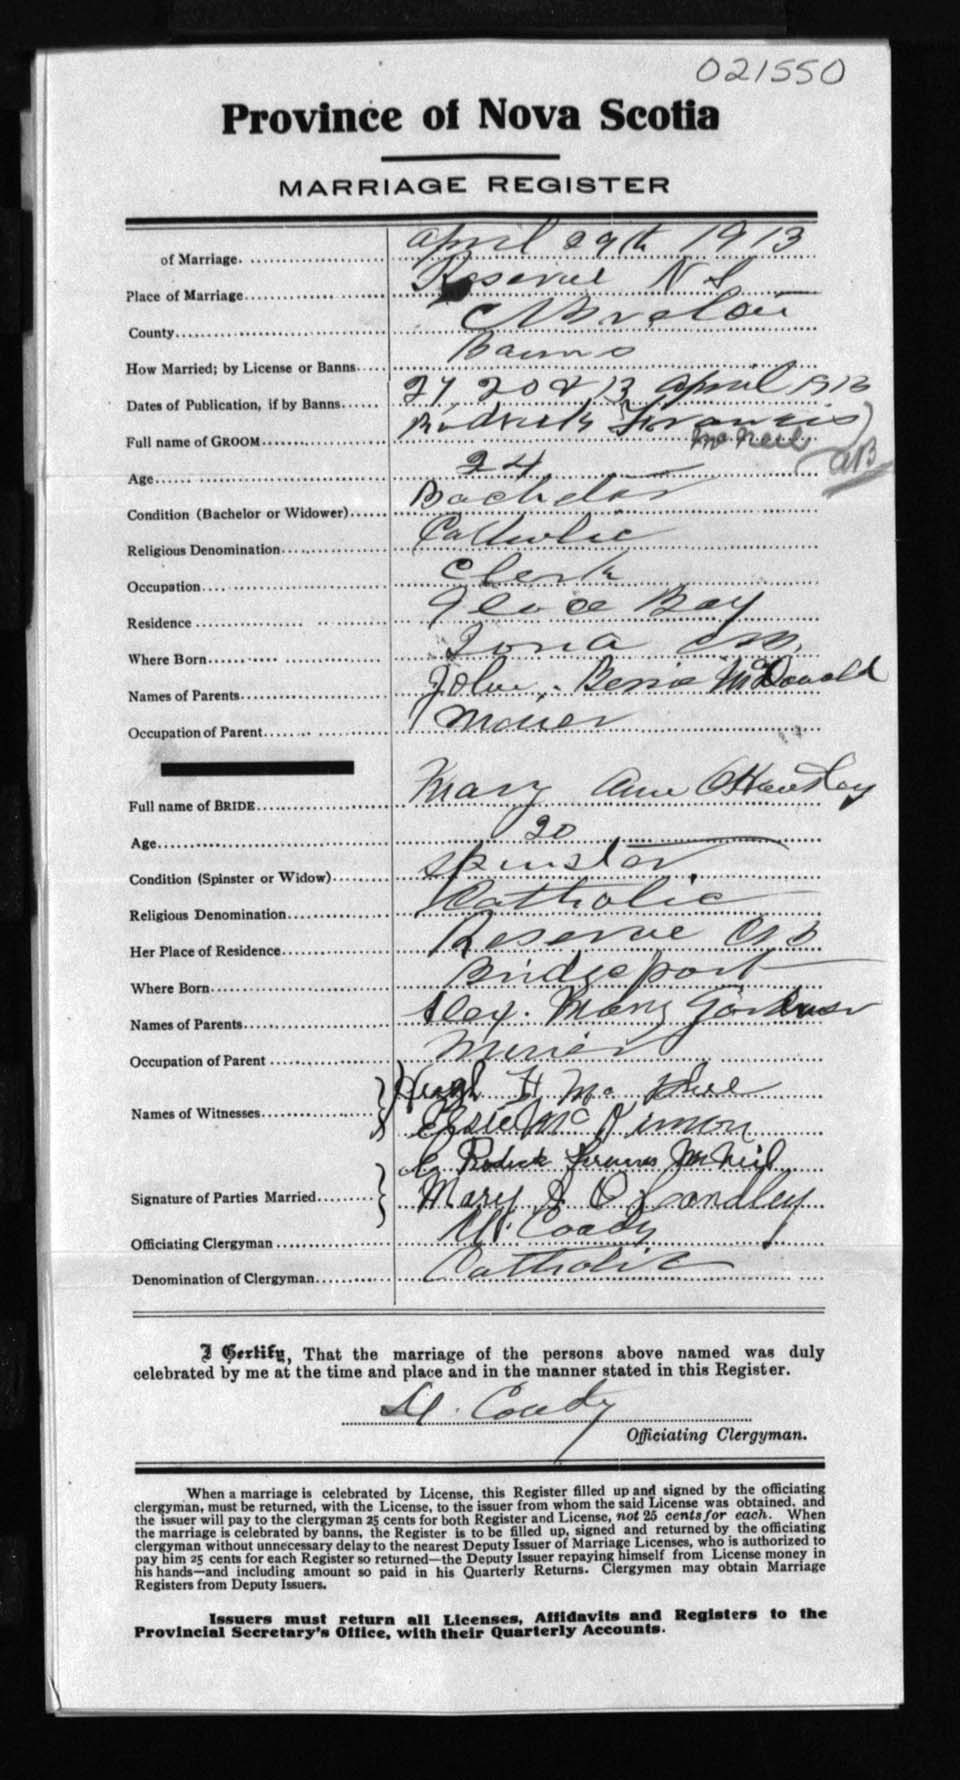 021550
Province of Nova Scotia
MARRIAGE REGISTER
of Marriage. April 29th 1913
Place of Marriage Reserve N S
County C Breton
How Married; by License or Banns Banns
Dates of Publication, if by Banns 27 20 & 13 April 1913
Full name of GROOM Roderick Francis
McNeil AB
Age 24
Condition (Bachelor or Widower) Bachelor
Religious Denomination Catholic
Occupation Clerk
Residence Glace Bay
Where Born Iona CB.
Names of Parents John. McDonald
Occupation of Parent Miner
Full name of BRIDE Mary Ann OHandley
Age 20
Condition (Spinster or Widow) Spinster
Religious Denomination Catholic
Her Place of Residence Reserve CB
Where Born Bridgeport
Names of Parents Alex. Mary
Occupation of Parent Miner
Hugh H Mc
Names of Witnesses Mc Kinnon
Francis McNeil
Signature of Parties Married Mary O Handley
Officiating Clergyman M. Coady
Denomination of Clergyman Catholic
I Certify, That the marriage of the persons above named was duly
celebrated by me at the time and place and in the manner stated in this Register.
M. Coady
Officiating Clergyman.
When a marriage is celebrated by License, this Register filled up and signed by the officiating
clergyman, must be returned, with the License, to the issuer from whom the said License was obtained, and
the issuer will pay to the clergyman 25 cents for both Register and License, not 25 cents for each. When
the marriage is celebrated by banns, the Register is to be filled up, signed and returned by the officiating
clergyman without unnecessary delay to the nearest Deputy Issuer of Marriage Licenses, who is authorized to
pay him 25 cents for each Register so returned—the Deputy Issuer repaying himself from License money in
his hands—and including amount so paid in his Quarterly Returns. Clergymen may obtain Marriage
Registers from Deputy Issuers.
Issuers must return all Licenses, Affidavits and Registers to the
Provincial Secretary's Office, with their Quarterly Accounts.